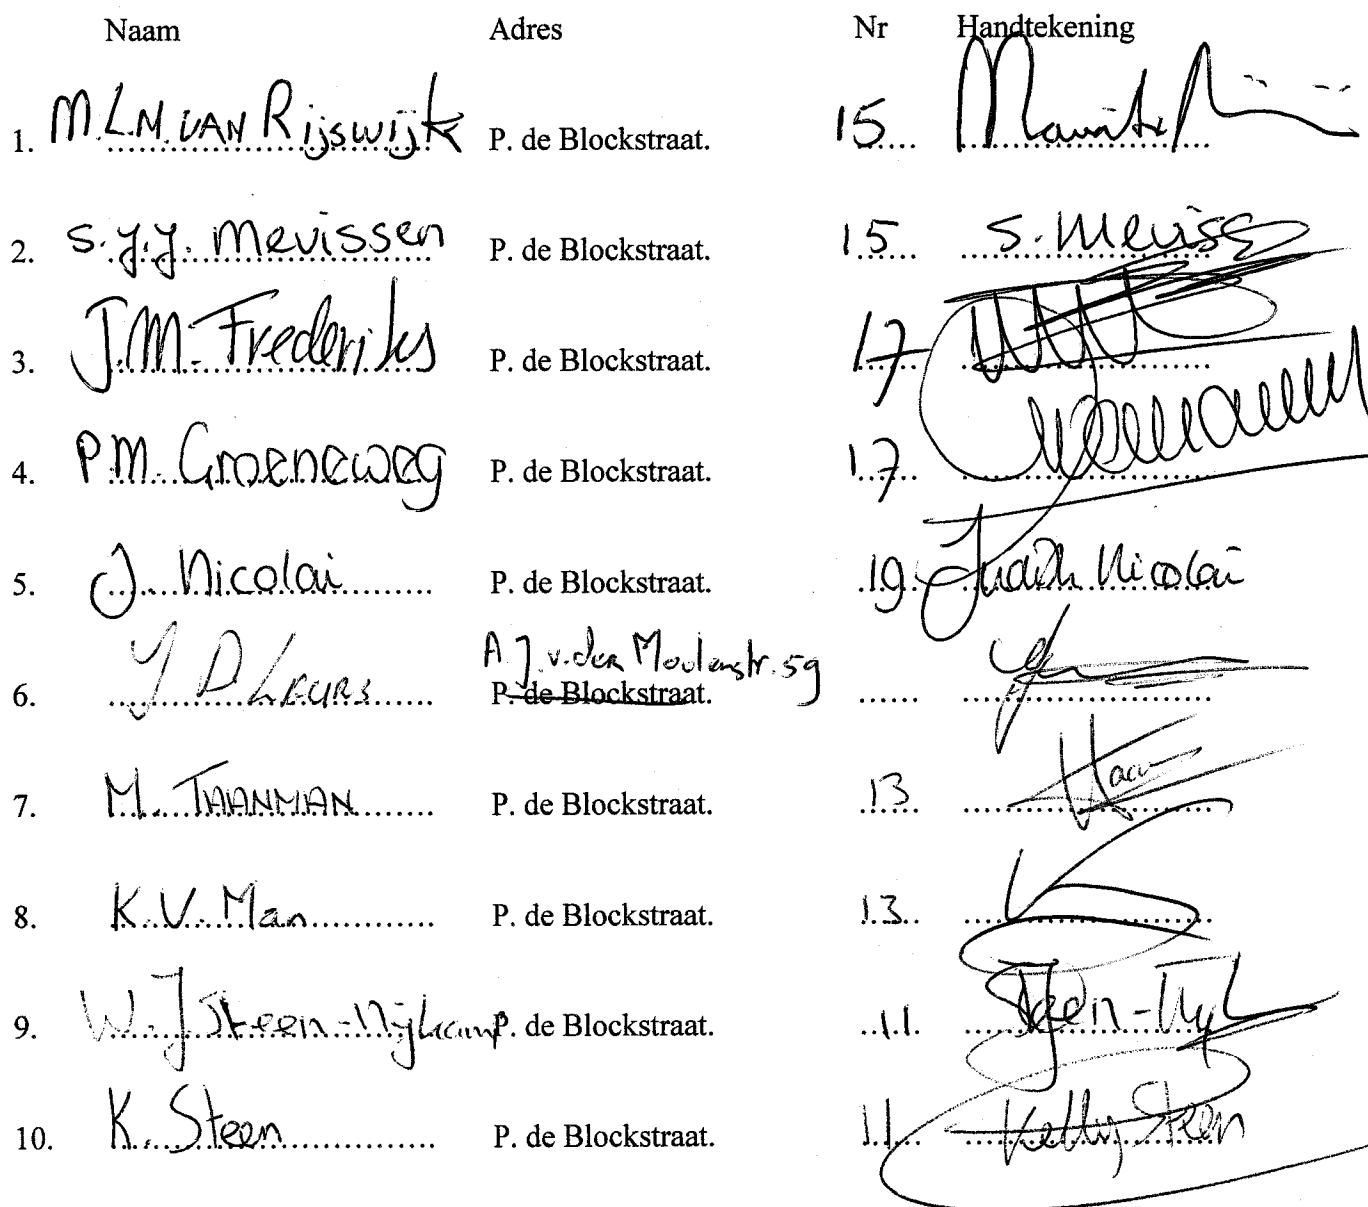 Naam Adres Nr Handtekening
1. M.L.M. VAN Rijswijk P. de Blockstraat. 15
2. S.y.y. Mevissen P. de Blockstraat. 15 S. Meviss
3. J.M. Frederiks P. de Blockstraat. 17
4. P.M. Groeneweg P. de Blockstraat. 17
5. J. Nicolai P. de Blockstraat. 19 Judith Nicolai
A.J. v. der Moolenstr. 59
6. P. de Blockstraat.
7. M. TAANMAN P. de Blockstraat. 13
8. K.V. Man P. de Blockstraat. 13
9. W.J Steen-Nijkamp P. de Blockstraat. 11 Steen-Nijk
10. K. Steen P. de Blockstraat. 11 Kelly Steen